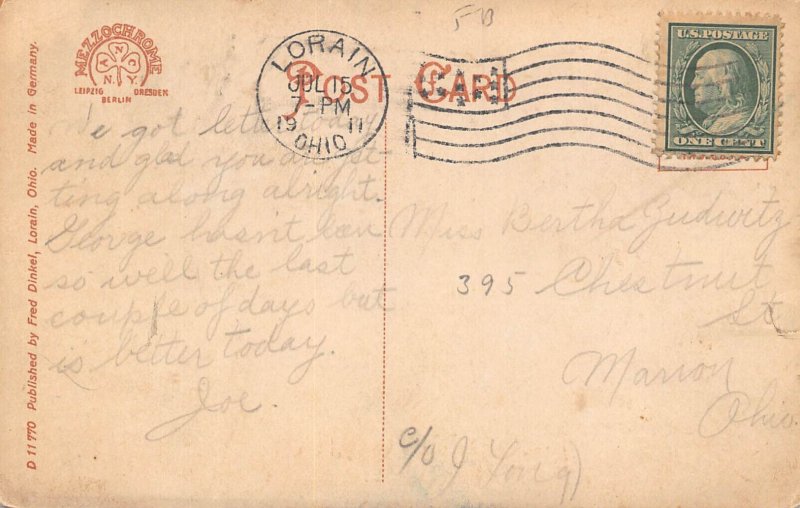 MEZZOCHROME
A N C
N.Y.
LEIPZIG DRESDEN
BERLIN
LORAIN
JUL 15
7-PM
19 11
OHIO
POST CARD
U.S. POSTAGE
ONE CENT
We got letter today
and glad you are get
ting along alright.
George hasn't been
so well the last
couple of days but
is better today.
Joe.
Miss Bertha
395 Chestnut
St
Marion
Ohio.
c/o J Long)
D 11770 Published by Fred Dinkel, Lorain, Ohio. Made in Germany.